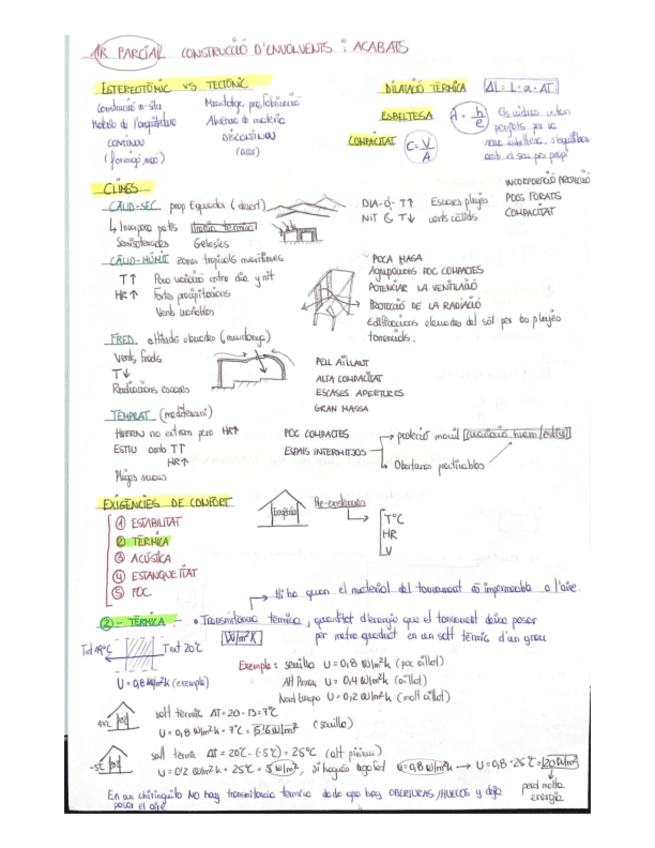 1R PARCIAL CONSTRUCCIÓ D'ENVOLVENTS i ACABATS
ESTEREOTÒMIC vs TECTÒNIC
Construcció in-situ
Muntatge, prefabricació
CONTINU
DISCONTINU
(acer)
DILATACIÓ TÈRMICA ΔL = L · α · ΔT
ESBELTESA λ = h/e
COMPACITAT C = V/A
amb el seu pes propi
CLIMES
CÀLID-SEC prop Equador (desert)
↳ Incorpora patis Inèrcia tèrmica
Gelosies
DIA T↑ Escasses pluges
NIT T↓ vents càlids
INCORPORACIÓ PROTECCIÓ
POCS FORATS
COMPACITAT
CÀLID-HÚMIT zones tropicals marítimes
T↑ Poca variació entre dia y nit
HR↑ Fortes precipitacions
Vents variables
POCA MASA
Agrupacions POC COMPACTES
POTENCIAR LA VENTILACIÓ
PROTECCIÓ DE LA RADIACIÓ
Edificacions elevades del sòl per les pluges
torrencials.
FRED altituds elevades (muntanya)
Vents freds
T↓
Radiacions escases
PELL AÏLLANT
ALTA COMPACITAT
ESCASES APERTURES
GRAN MASSA
TEMPRAT (mediterrani)
HIVERN no extrem però HR↑
ESTIU amb T↑
HR↑
Pluges
POC COMPACTES
ESPAIS INTERMITJOS
→ protecció movil (variació hivern/estiu)
→ Obertures practicables
EXIGÈNCIES DE CONFORT
① ESTABILITAT
② TÈRMICA
③ ACÚSTICA
④ ESTANQUEITAT
⑤ FOC
Pre-existencies
T°C
HR
V
→ Hi ha quan el material del tancament és impermeable a l'aire.
②- TÈRMICA - • Transmitància tèrmica, quantitat d'energia que el tancament deixa passar
W/m²K per metre quadrat en un salt tèrmic d'un grau
Text 20°C
U = 0,8 W/m²K (exemple)
Exemple: Sevilla U = 0,8 W/m²K (poc aïllat)
Alt Pirineu U = 0,4 W/m²K (aïllat)
Nord Europa U = 0,2 W/m²K (molt aïllat)
salt tèrmic ΔT = 20 - 13 = 7°C
U = 0,8 W/m²K · 7°C = 5'6 W/m² (sevilla)
-5°C
salt tèrmic ΔT = 20°C - (-5°C) = 25°C (alt pirineu)
U = 0'2 W/m²K · 25°C = 5 W/m², si hagués agafat U = 0,8 W/m²K → U = 0,8 · 25°C = 20 W/m²
perd molta
energia
En un chiringuito NO hay transmitancia termica dado que hay OBERTURAS/HUECOS y deja
pasar el aire